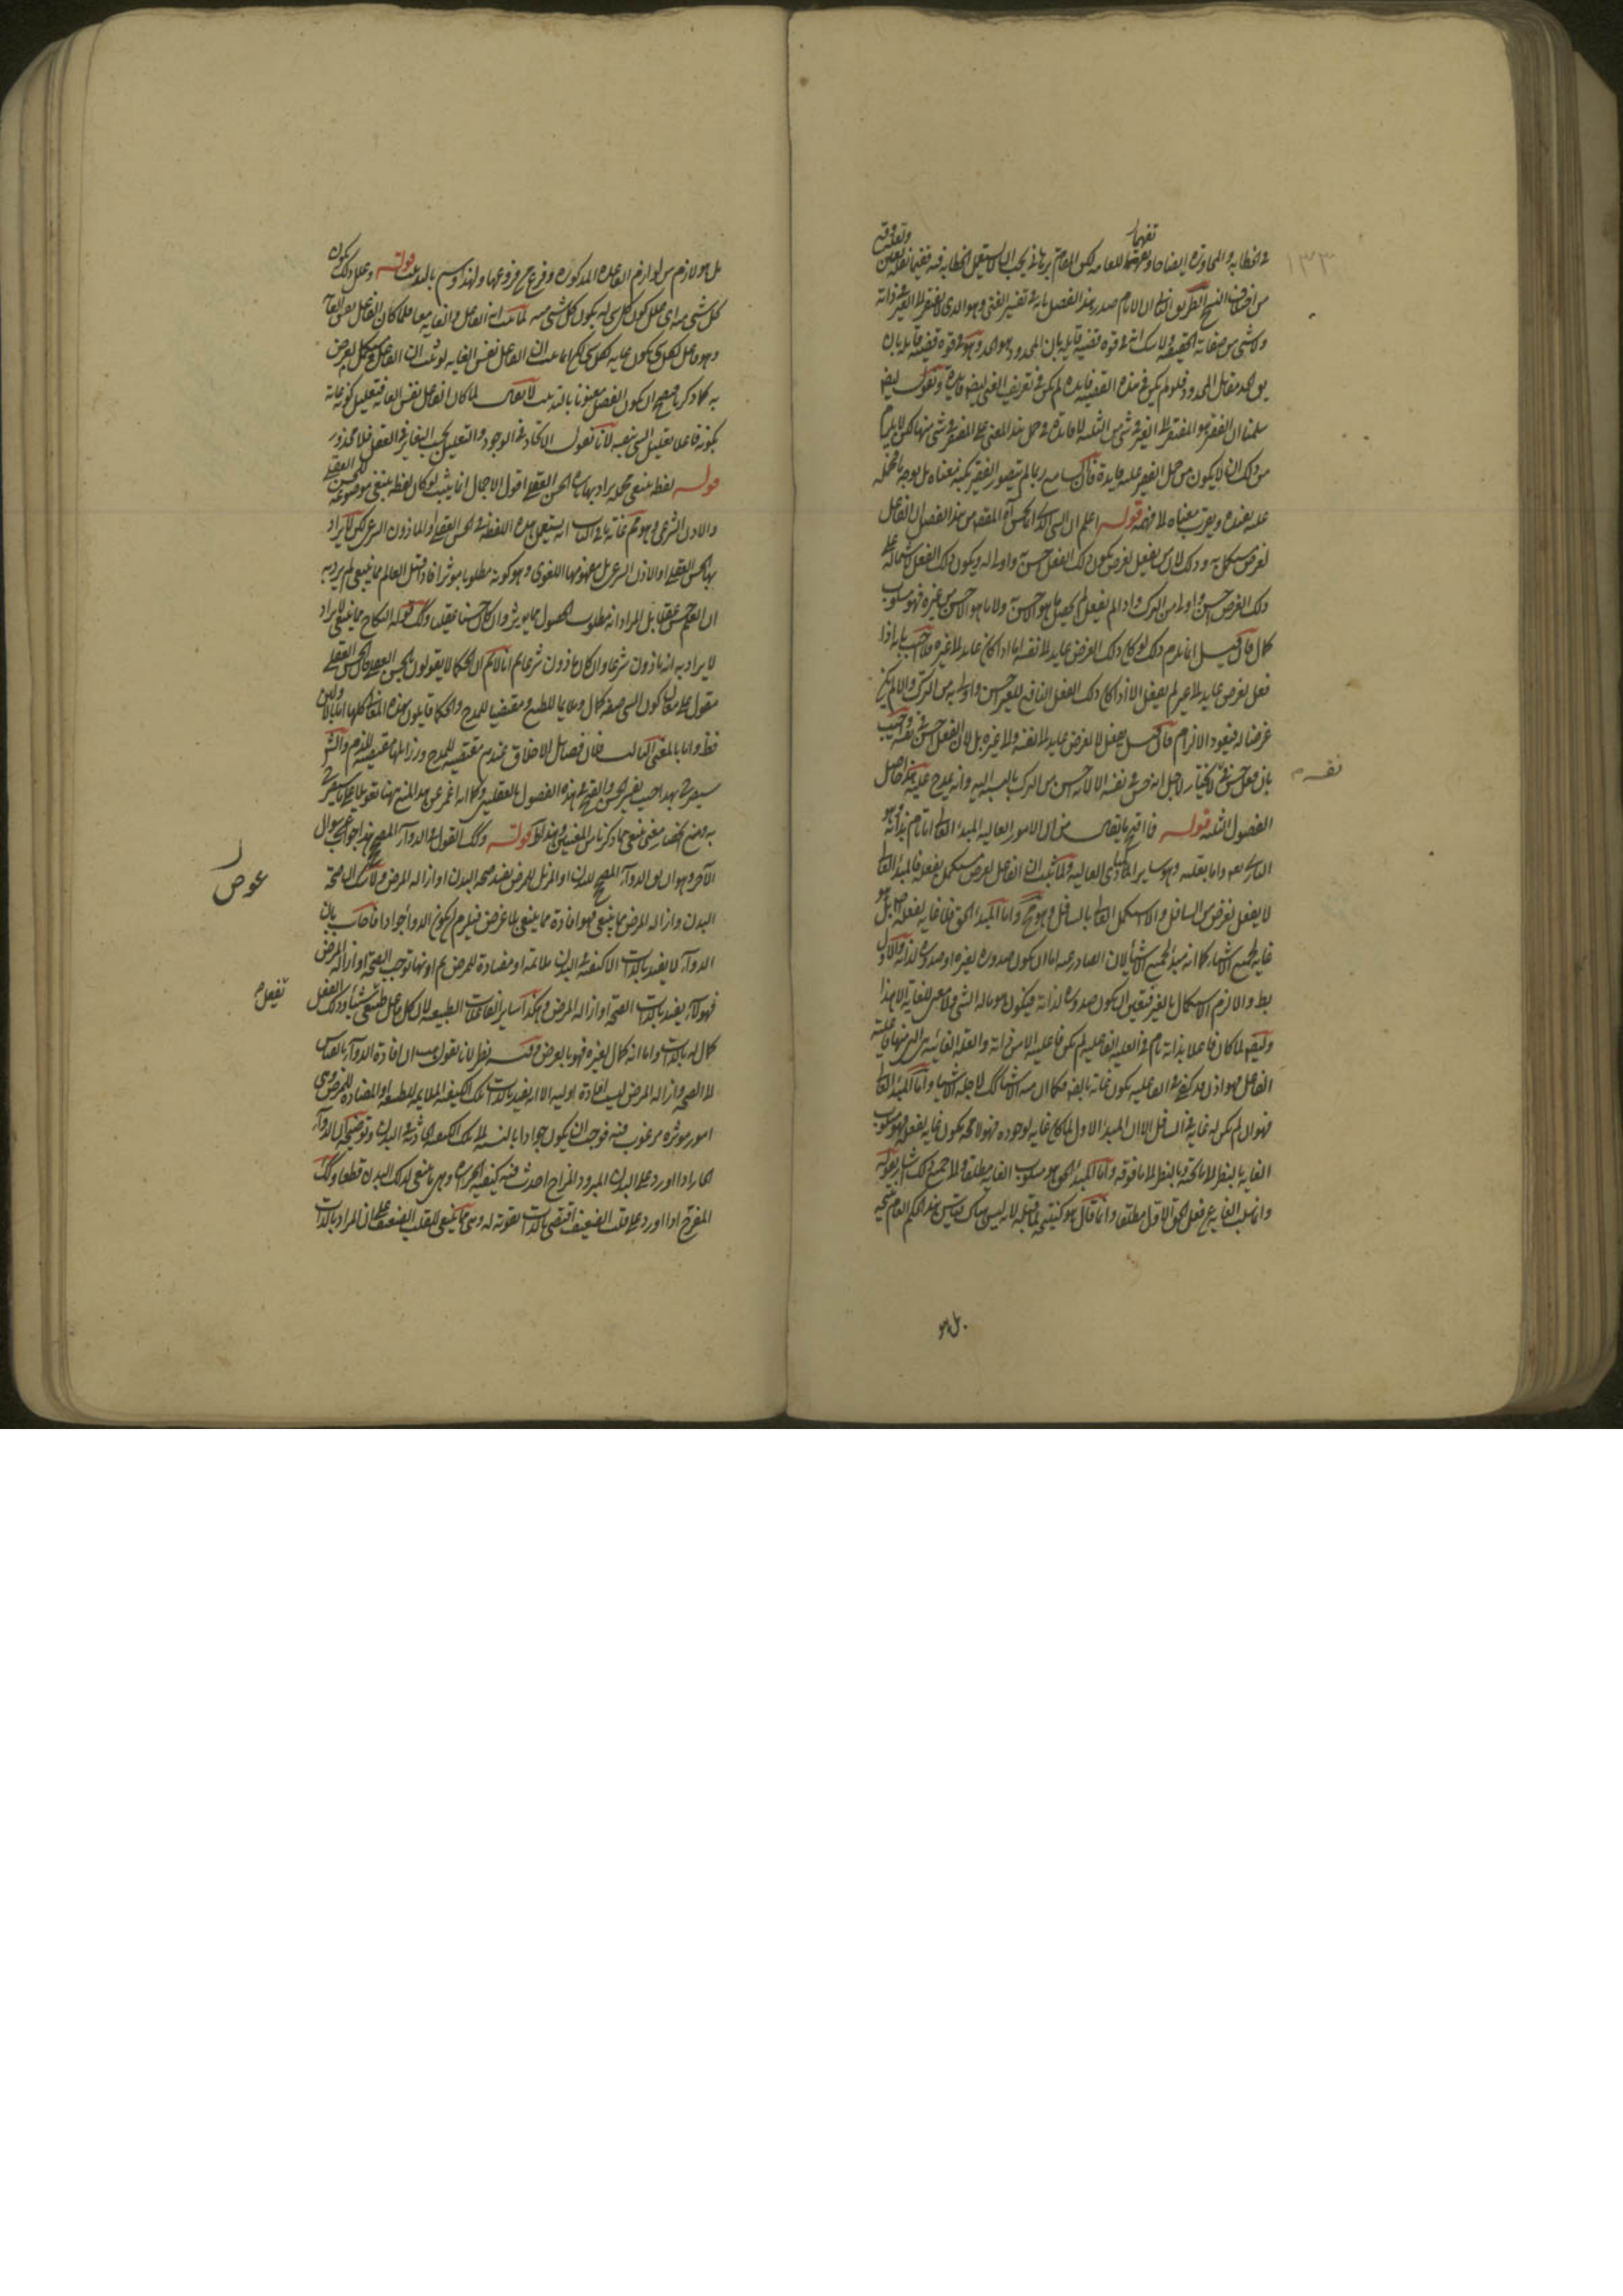 في الخطابة والمحاورة ايضاحا وتفهيما للعامة لكن المقام برهاني يجب ان لا يستعمل الخطابة فيه
تفهيما
١٣٣
من اختلاف النسخ الطريق الثاني ان الامام صدر هذا الفصل بانه في تفسير الغنى وهو الذي لا يفتقر الى الغير في ذاته
ولا شيء من صفاته الحقيقية ولا شك انه في قوة قضية قايلة بان المحدود هو الحد وهو في قوة قضية قايلة بان
الحد مقابل المحدود فلو لم يكن في هذه القضية فايدة لم يكن في تعريف الغنى ايضا فايدة ونقول ايضا
سلمنا ان الفقير هو المفتقر الى الغير في شيء من الثلثة لا فايدة في حمل هذا المعنى على المفتقر في شيء منها لكن لا يلزم
من ذلك ان لا يكون من حمل الفقير عليه فايدة فان السامع ربما لم يتصور الفقير بكنه معناه بل بوجه ما فحمله
عليه يفيده ويقرب معناه الى فهمه قوله اعلم ان الشيء الذي انما يحسن آه المقصد من هذا الفصل ان الفاعل
لغرض مستكمل به وذلك لان من يفعل لغرض يكون ذلك الفعل احسن به واولى له ويكون ذلك الفعل لاشتماله على
ذلك الغرض احسن واولى من الترك واذا لم يفعل لم يحصل ما هو الاحسن به ولا ما هو الاحسن من غيره فهو مسلوب
كمال فان قيل انما يلزم ذلك لو كان ذلك الغرض عايدا الى نفسه اما اذا كان عايدا الى غيره فلا اجيب بانه اذا
فعل لغرض عايد الى غيره لم يفعل الا اذا كان ذلك الفعل النافع للغير احسن واولى به من الترك والا لم يكن
غرضا له فيعود الالزام فان قيل يفعل لا لغرض عايد الى نفسه ولا الى غيره بل لان الفعل حسن في نفسه اجيب
بان فعل الحسن لا يختار لاجل انه حسن في نفسه الا لانه احسن من الترك بالنسبة اليه وانه يمدح عليه هذا حاصل
الفصول الثلثة قوله فما اقبح ما يقال من ان الامور العالية المبدء العالي اما تام بذاته وهو
الباري تعالى واما بعلته وهو ساير المبادي العالية ولما ثبت ان الفاعل لغرض مستكمل بفعله فالمبدء العالي
لا يفعل لغرض من السافل والا لاستكمل العالي بالسافل وهو مح واما المبدء الحق فلا غاية لفعله اصلا بل هو
غاية لجميع الاشياء كما انه مبدء لجميع الاشياء لان الصادر عنه اما ان يكون صدوره لغيره او صدوره لذاته والاول
بط والا لزم الاستكمال بالغير فتعين ان يكون صدوره لذاته فيكون هو ما له الشيء ولا معنى للغاية الا هذا
وايضا لما كان فاعلا بذاته تام في العلية الفاعلية لم يكن فاعليته الا من ذاته والعلة الغائية هي التي منها فاعلية
الفاعل فهو اذن كما كونه في الفاعلية يكون غاية بالفعل فكما ان منه الاشياء كذلك لاجله الاشياء واما المبدء العالي
فهو ان لم يكن له غاية في السافل الا ان المبدء الاول لما كان غاية لوجوده فهو لا محه يكون غاية لفعله فهو مسلوب
الغاية بالنظر الى ما تحته وبالنظر الى ما فوقه واما المبدء الحق فهو مسلوب الغاية مطلقا والى جميع ذلك اشار بقوله
وانما سلب الغاية عن فعل الحق الاول مطلقا وانما قال هو كنتيجة لما قبله لانه ليس هناك قياس هذا الحكم العام نتيجة
بل هو
بل هو لازم من لوازم القاعدة المذكورة وفرع من فروعها ولهذا وسم بالتذنيب قوله وعلل ذلك يكون
كل شيء منه اي علل كون كل شيء له بكون كل شيء منه لما ثبت ان الفاعل والغاية معا فلما كان الفاعل نفس الغاية
وهو فاعل لكل شيء يكون غاية لكل شيء لكن انما ثبت ان الفاعل نفس الغاية لو ثبت ان الفاعل مستكمل بغرض
به كما ذكرنا فيصح ان يكون الفصل معنونا بالتذنيب لا يقال لما كان الفاعل نفس الغاية فتعليل كونه غاية
بكونه فاعلا تعليل الشيء بنفسه لانا نقول الاتحاد في الوجود والتعليل بحسب التغاير في العقل فلا محذور
قوله لفظ ينبغي مجمل يراد بها تارة الحسن العقلي اقول الاجمال انما يثبت لو كان لفظ ينبغي موضوعة للحسن العقلي
والاذن الشرعي وهو مم غاية ما في الباب انه يستعمل هذه اللفظة في الحسن العقلي او الماذون الشرعي لكن لا يراد
بها الحسن العقلي او الاذن الشرعي بل مفهومها اللغوي وهو كونه مطلوبا موثرا فاذا قيل العالم مما ينبغي لم يرد به
ان العلم حسن عقلا بل المراد انه مطلوب الحصول مما يوثر وان كان حسنا عقلا وكك قوله النكاح مما ينبغي لا يراد
لا يراد به انه ماذون شرعا وان كان ماذون شرعا ثم انا لا نم ان الحكما لا يقولون بالحسن العقلي فان الحسن العقلي
مقول على معان كون الشيء صفة كمال وملايما للطبع ومقتضيا للمدح والحكما قايلون بهذه المعاني كلها اما بالاولين
فظ واما بالمعنى الثالث فلان فضايل الاخلاق عندهم مقتضية للمدح ورذايلها مقتضية للذم والشيخ
سيصرح بهذا حيث يفسر الحسن والقبح في هذه الفصول بالعقليين وكانه اغمض عن هذا المنع ههنا تعويلا على ما سيصرح
به ومنع انحصار معنى ينبغي فيما ذكرنا من المعنيين وهذا ظ قوله وكك القول في الدواء المصحح هذا جواب عن سوال
الآخر وهو ان يق الدواء المصحح للبدن او المزيل للمرض يفيد صحة البدن او ازالة المرض ولا شك ان صحة
عوض
البدن وازالة المرض مما ينبغي فهو افادة مما ينبغي لا لغرض فيلزم ان يكون الدواء جوادا فاجاب بان
الدواء لا يفيد بالذات الا كيفية في البدن ملايمة او مضادة للمرض ثم انها توجب الصحة او ازالة المرض
فهو لا يفيد بالذات الصحة او ازالة المرض وهكذا ساير الفاعلات الطبيعية لان كل فاعل طبيعي يفعل شيئا وذلك الفعل
كمال له بالذات واما انه كمال لغيره فهو بالعرض وفيه نظر لانا نقول هب ان افادة الدواء بالقياس
الى الصحة وازالة المرض ليست افادة اولية الا انه يفيد بالذات تلك الكيفية الملايمة للطبيعة او المضادة للمرض وهي
امور موثرة مرغوب فيه فوجب ان يكون جوادا بالنسبة الى تلك الكيفية الحادثة في البدن وتوضيحه ان الدواء
الحار اذا اورد على البدن المبرود المزاج احدث فيه كيفية الحرارة وهي ما ينبغي لذلك البدن قطعا وكك
المفرح اذا اورد على قلب الضعيف اقتضى بالذات تقوية له وهي مما ينبغي للقلب الضعيف على ان المراد بالذات